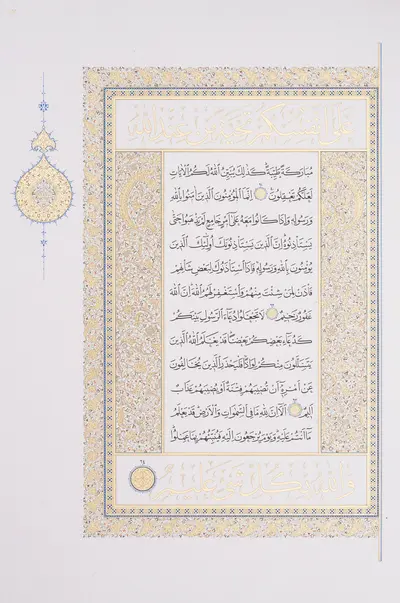 عَلَىٰ أَنفُسِكُمْ تَحِيَّةً مِنْ عِندِ اللَّهِ
مُبَارَكَةً طَيِّبَةً كَذَٰلِكَ يُبَيِّنُ اللَّهُ لَكُمُ الْآيَاتِ
لَعَلَّكُمْ تَعْقِلُونَ إِنَّمَا الْمُؤْمِنُونَ الَّذِينَ آمَنُوا بِاللَّهِ
وَرَسُولِهِ وَإِذَا كَانُوا مَعَهُ عَلَىٰ أَمْرٍ جَامِعٍ لَمْ يَذْهَبُوا حَتَّىٰ
يَسْتَأْذِنُوهُ إِنَّ الَّذِينَ يَسْتَأْذِنُونَكَ أُولَٰئِكَ الَّذِينَ
يُؤْمِنُونَ بِاللَّهِ وَرَسُولِهِ فَإِذَا اسْتَأْذَنُوكَ لِبَعْضِ شَأْنِهِمْ
فَأْذَنْ لِمَنْ شِئْتَ مِنْهُمْ وَاسْتَغْفِرْ لَهُمُ اللَّهَ إِنَّ اللَّهَ
غَفُورٌ رَحِيمٌ لَا تَجْعَلُوا دُعَاءَ الرَّسُولِ بَيْنَكُمْ
كَدُعَاءِ بَعْضِكُمْ بَعْضًا قَدْ يَعْلَمُ اللَّهُ الَّذِينَ
يَتَسَلَّلُونَ مِنْكُمْ لِوَاذًا فَلْيَحْذَرِ الَّذِينَ يُخَالِفُونَ
عَنْ أَمْرِهِ أَنْ تُصِيبَهُمْ فِتْنَةٌ أَوْ يُصِيبَهُمْ عَذَابٌ
أَلِيمٌ أَلَا إِنَّ لِلَّهِ مَا فِي السَّمَٰوَاتِ وَالْأَرْضِ قَدْ يَعْلَمُ
مَا أَنْتُمْ عَلَيْهِ وَيَوْمَ يُرْجَعُونَ إِلَيْهِ فَيُنَبِّئُهُمْ بِمَا عَمِلُوا
وَاللَّهُ بِكُلِّ شَيْءٍ عَلِيمٌ